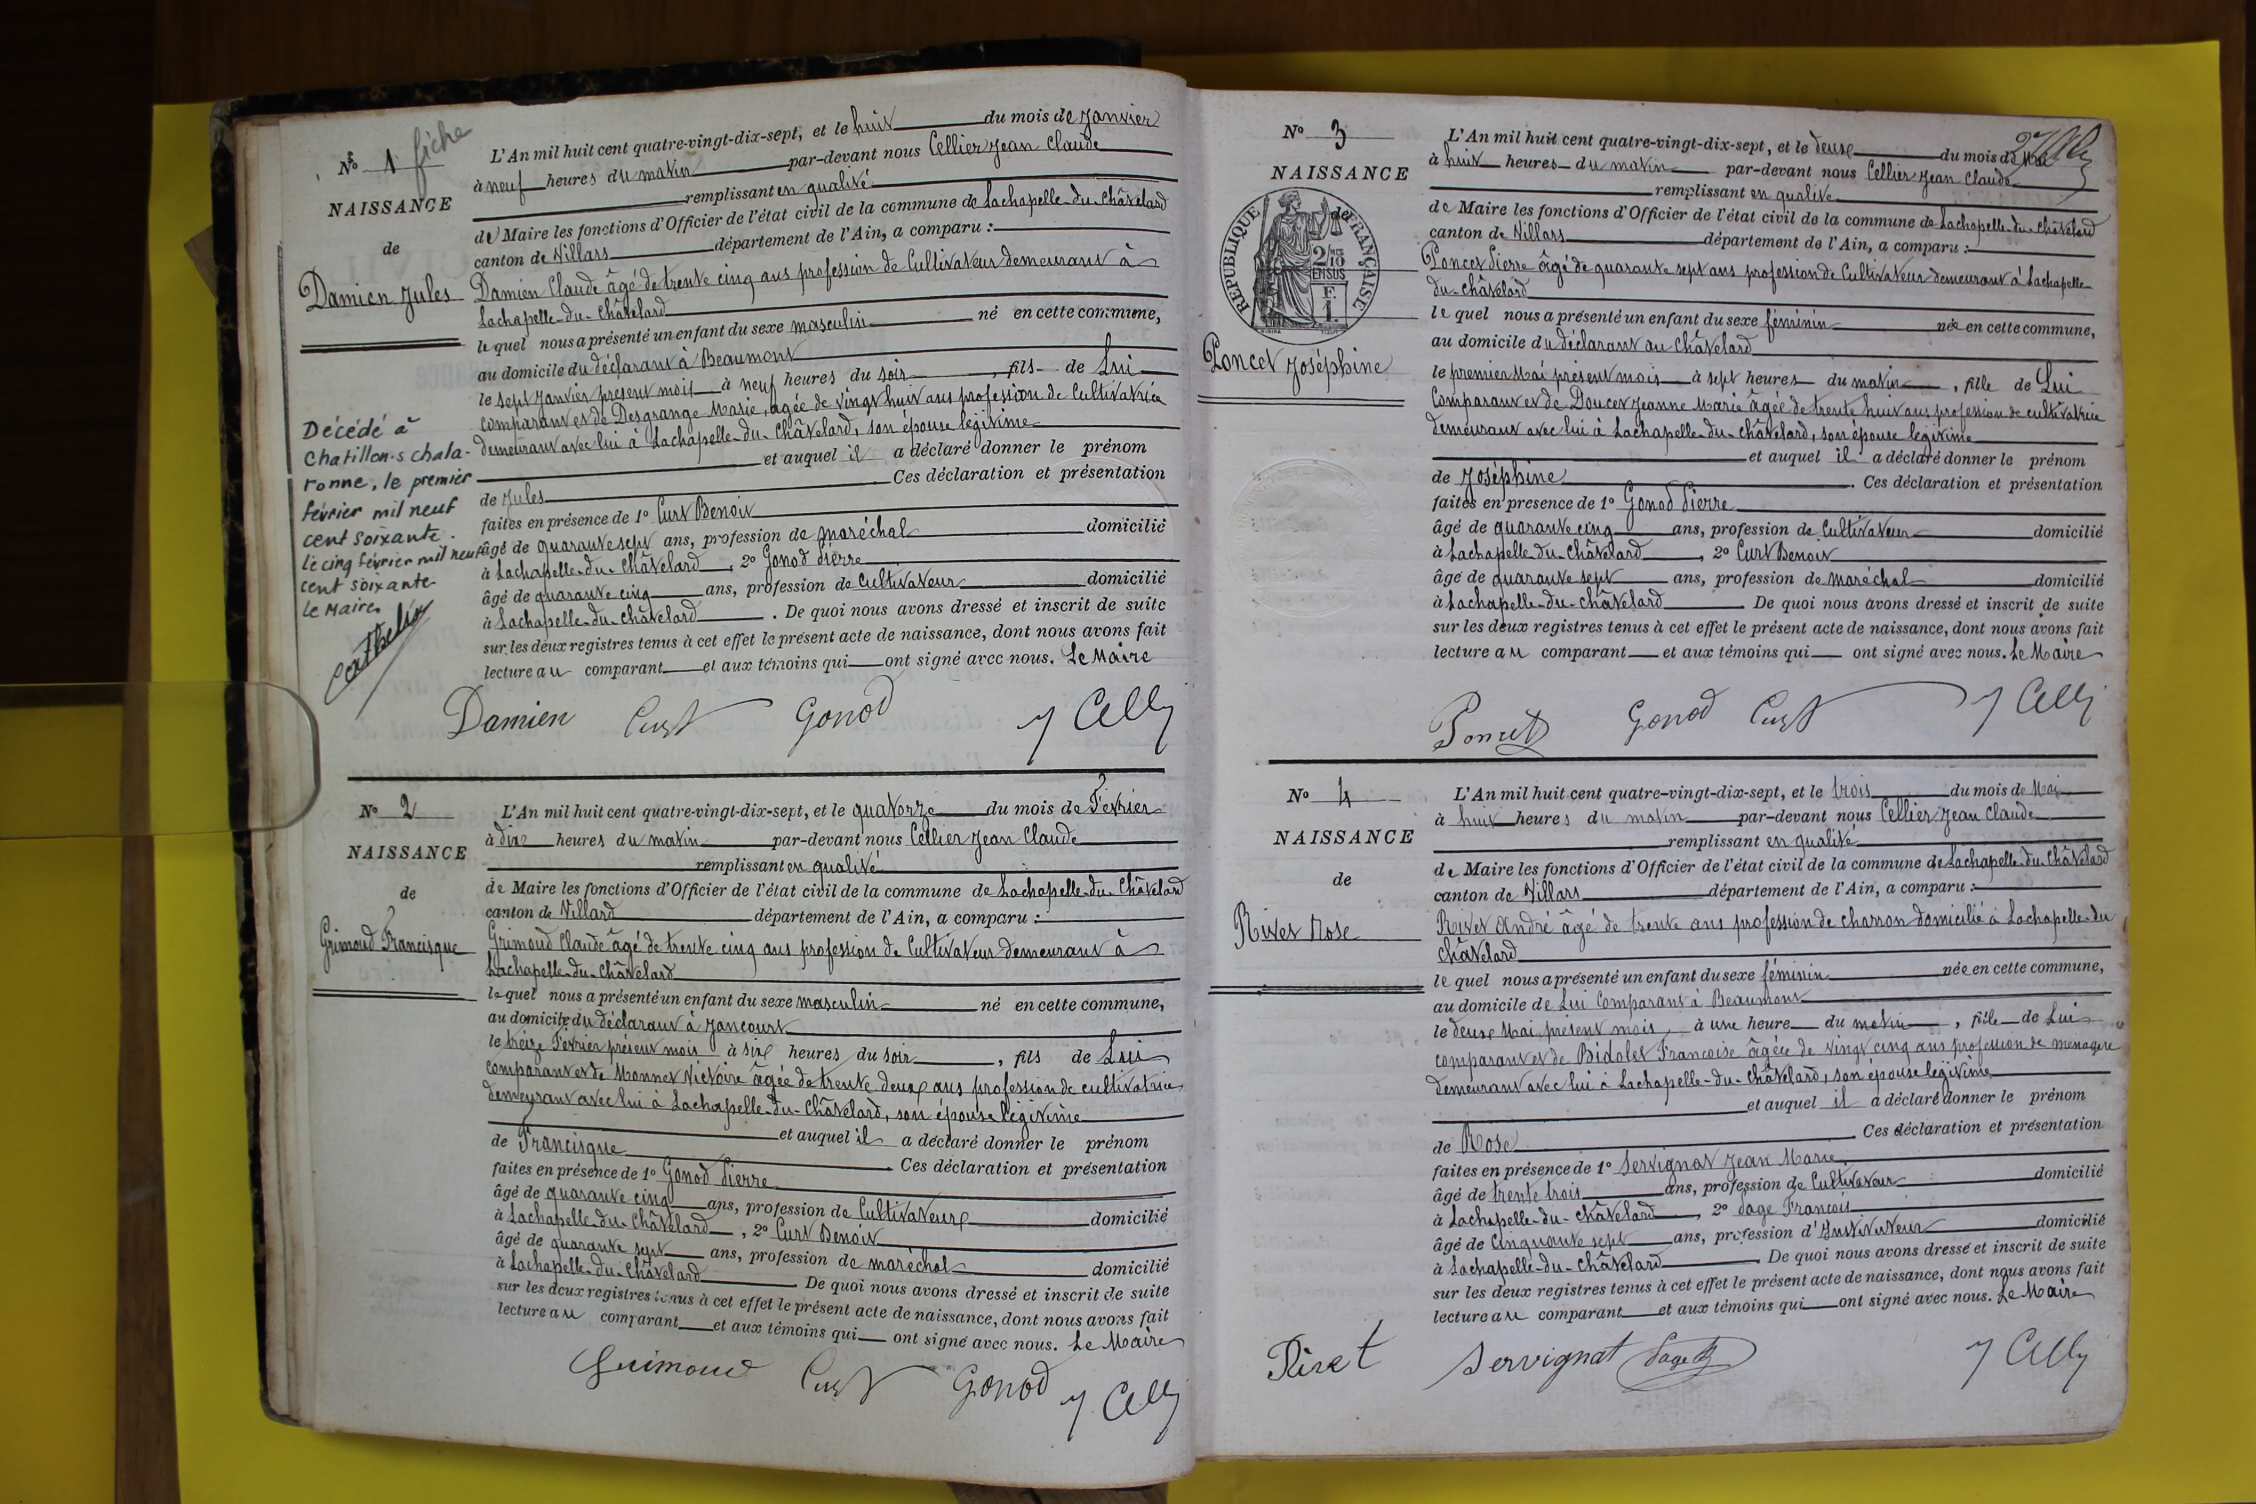 N° 1 fiche
NAISSANCE
de
Damien Jules
Décédé à
Chatillon-s chala-
ronne, le premier
février mil neuf
cent soixante.
le cinq février mil neuf
cent soixante-
Le Maire,
L'An mil huit cent quatre-vingt-dix-sept, et le huit du mois de Janvier
à neuf heures du matin par-devant nous Cellier Jean Claude
remplissant en qualité
de Maire les fonctions d'Officier de l'état civil de la commune de Lachapelle-du-Châtelard
canton de Villars département de l'Ain, a comparu :
Damien Claude âgé de trente cinq ans profession de Cultivateur demeurant à
Lachapelle-du-Châtelard
le quel nous a présenté un enfant du sexe masculin né en cette commune,
au domicile du déclarant à Beaumont
le sept Janvier présent mois à neuf heures du soir, fils de Lui
comparant et de Desgrange Marie, âgée de vingt huit ans profession de Cultivatrice
demeurant avec lui à Lachapelle-du-Châtelard, son épouse légitime
et auquel il a déclaré donner le prénom
de Jules Ces déclaration et présentation
faites en présence de 1° Curt Benoit
âgé de quarante sept ans, profession de maréchal domicilié
à Lachapelle-du-Châtelard, 2° Gonod Pierre
âgé de quarante cinq ans, profession de Cultivateur domicilié
à Lachapelle-du-Châtelard. De quoi nous avons dressé et inscrit de suite
sur les deux registres tenus à cet effet le présent acte de naissance, dont nous avons fait
lecture au comparant et aux témoins qui ont signé avec nous. Le Maire
Damien Curt Gonod J Celly
N° 2
NAISSANCE
de
Grimoud Francisque
L'An mil huit cent quatre-vingt-dix-sept, et le quatorze du mois de Février
à dix heures du matin par-devant nous Cellier Jean Claude
remplissant en qualité
de Maire les fonctions d'Officier de l'état civil de la commune de Lachapelle-du-Châtelard
canton de Villard département de l'Ain, a comparu :
Grimoud Claude âgé de trente cinq ans profession de Cultivateur demeurant à
Lachapelle-du-Châtelard
le quel nous a présenté un enfant du sexe masculin né en cette commune,
au domicile du déclarant à Jancourt
le treize Février présent mois à six heures du soir, fils de Lui
comparant et de Monnet Victoire âgée de trente deux ans profession de cultivatrice
demeurant avec lui à Lachapelle-du-Châtelard, son épouse légitime
et auquel il a déclaré donner le prénom
de Francisque Ces déclaration et présentation
faites en présence de 1° Gonod Pierre
âgé de quarante cinq ans, profession de Cultivateur domicilié
à Lachapelle-du-Châtelard, 2° Curt Benoit
âgé de quarante sept ans, profession de maréchal domicilié
à Lachapelle-du-Châtelard. De quoi nous avons dressé et inscrit de suite
sur les deux registres tenus à cet effet le présent acte de naissance, dont nous avons fait
lecture au comparant et aux témoins qui ont signé avec nous. Le Maire
Grimoud Curt Gonod J Celly
N° 3
NAISSANCE
de
RÉPUBLIQUE FRANÇAISE
2/10
EN SUS
F.
1.
Poncet Joséphine
L'An mil huit cent quatre-vingt-dix-sept, et le deux du mois de Mai
à huit heures du matin par-devant nous Cellier Jean Claude
remplissant en qualité
de Maire les fonctions d'Officier de l'état civil de la commune de Lachapelle-du-Châtelard
canton de Villars département de l'Ain, a comparu :
Poncet Pierre âgé de quarante sept ans profession de Cultivateur demeurant à Lachapelle
du-Châtelard
le quel nous a présenté un enfant du sexe féminin née en cette commune,
au domicile du déclarant au Châtelard
le premier Mai présent mois à sept heures du matin, fille de Lui
comparant et de Doucet Jeanne Marie âgée de trente huit ans profession de cultivatrice
demeurant avec lui à Lachapelle-du-Châtelard, son épouse légitime
et auquel il a déclaré donner le prénom
de Joséphine. Ces déclaration et présentation
faites en présence de 1° Gonod Pierre
âgé de quarante cinq ans, profession de Cultivateur domicilié
à Lachapelle-du-Châtelard, 2° Curt Benoit
âgé de quarante sept ans, profession de maréchal domicilié
à Lachapelle-du-Châtelard. De quoi nous avons dressé et inscrit de suite
sur les deux registres tenus à cet effet le présent acte de naissance, dont nous avons fait
lecture au comparant et aux témoins qui ont signé avec nous. Le Maire
Poncet Gonod Curt J Celly
N° 4
NAISSANCE
de
Rivet Rose
L'An mil huit cent quatre-vingt-dix-sept, et le trois du mois de Mai
à huit heures du matin par-devant nous Cellier Jean Claude
remplissant en qualité
de Maire les fonctions d'Officier de l'état civil de la commune de Lachapelle-du-Châtelard
canton de Villars département de l'Ain, a comparu :
Rivet André âgé de trente ans profession de charron domicilié à Lachapelle-du
Châtelard
le quel nous a présenté un enfant du sexe féminin née en cette commune,
au domicile de Lui comparant à Beaumont
le deux Mai présent mois, à une heure du matin, fille de Lui
comparant et de Bidolet Françoise âgée de vingt cinq ans profession de ménagère
demeurant avec lui à Lachapelle-du-Châtelard, son épouse légitime
et auquel il a déclaré donner le prénom
de Rose. Ces déclaration et présentation
faites en présence de 1° Servignat Jean Marie
âgé de trente trois ans, profession de Cultivateur domicilié
à Lachapelle-du-Châtelard, 2° Page François
âgé de cinquante sept ans, profession d'Instituteur domicilié
à Lachapelle-du-Châtelard. De quoi nous avons dressé et inscrit de suite
sur les deux registres tenus à cet effet le présent acte de naissance, dont nous avons fait
lecture au comparant et aux témoins qui ont signé avec nous. Le Maire
Rivet Servignat Page J Celly